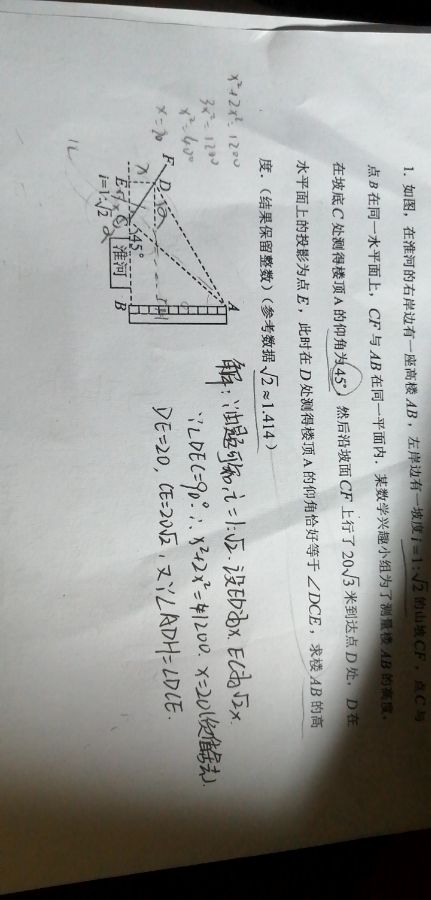 1. 如图，在淮河的右岸边有一座高楼AB，左岸边有一坡度i=1:√2的山坡CF，点C与
点B在同一水平面上，CF与AB在同一平面内．某数学兴趣小组为了测量楼AB的高度，
在坡底C处测得楼顶A的仰角为45°，然后沿坡面CF上行了20√3米到达点D处，D在
水平面上的投影为点E，此时在D处测得楼顶A的仰角恰好等于∠DCE，求楼AB的高
度．（结果保留整数）（参考数据√2≈1.414）
x²+2x²=1200
3x²=1200
x²=400
x=20
F
D
A
H
E
C
45°
i=1:√2
淮河
B
解：∵由题可知，i=1:√2．设ED为x，EC为√2x．
∵∠DEC=90°∴x²+2x²=1200．x=20（负值舍去）．
DE=20，CE=20√2，又∵∠ADH=∠DCE．